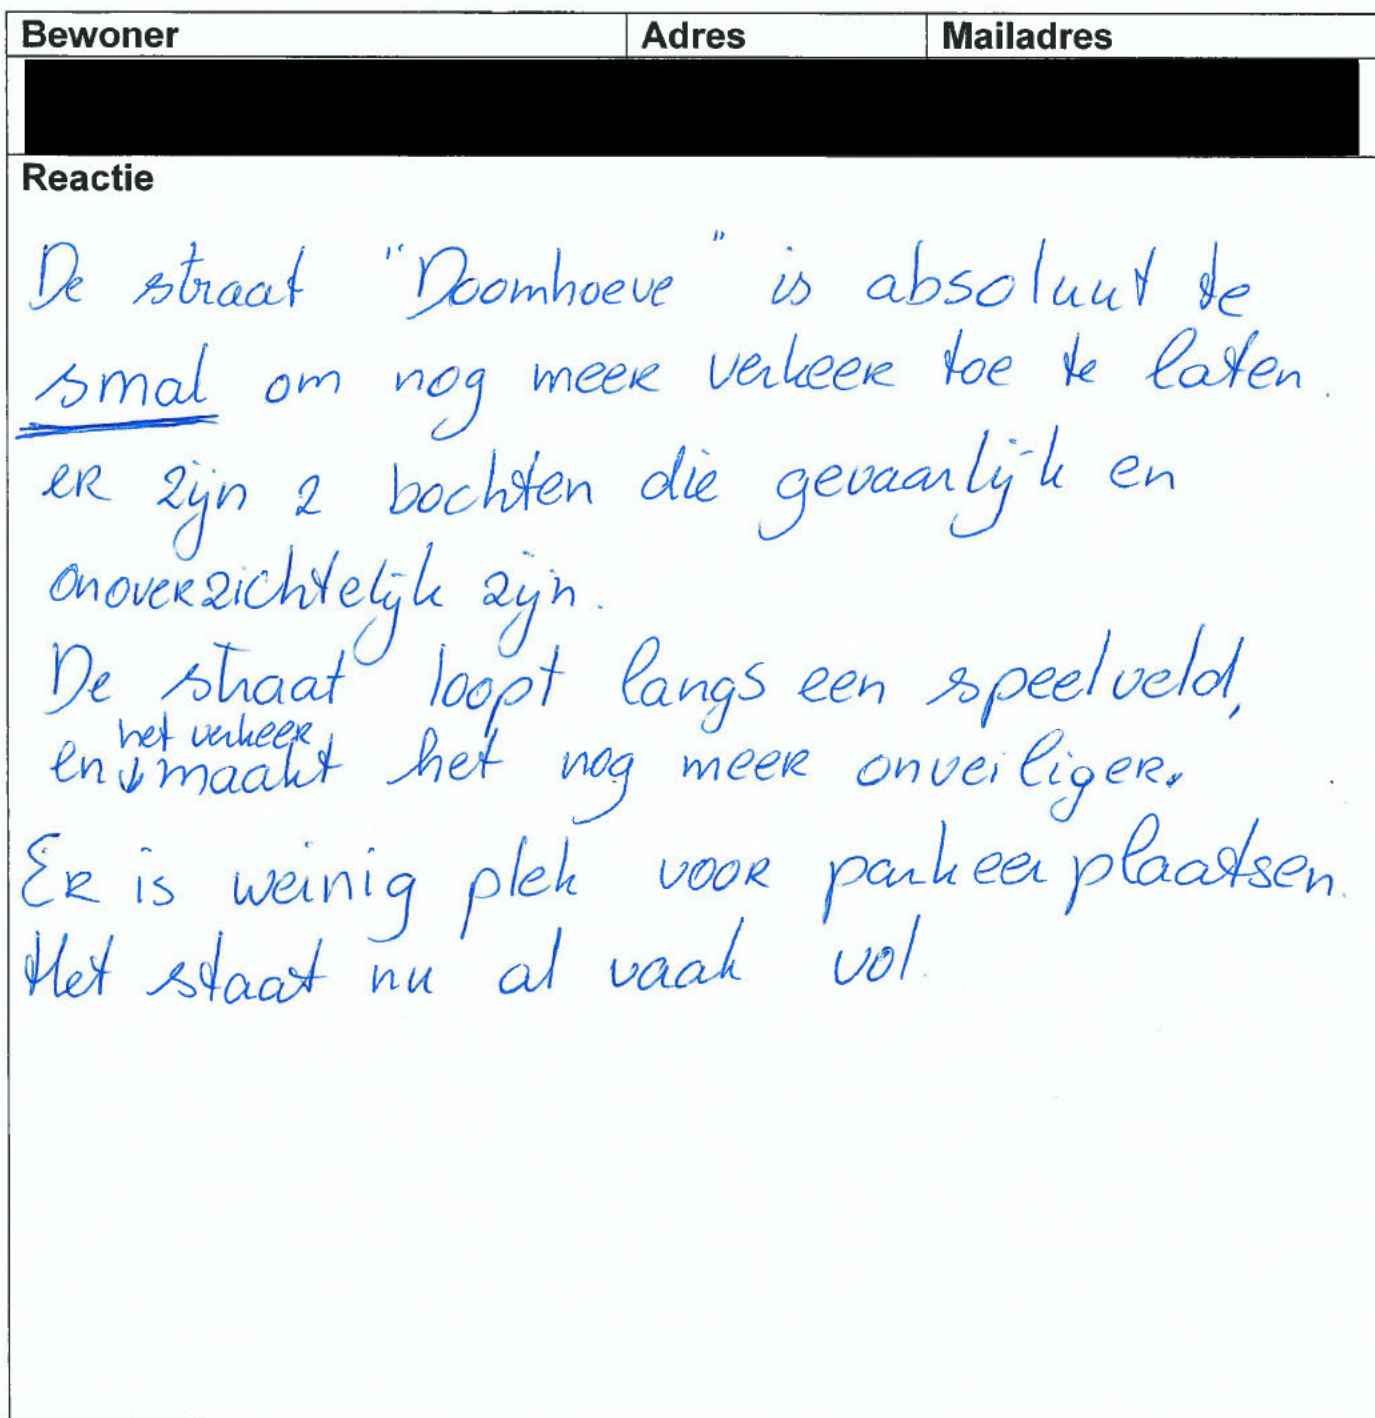 Bewoner Adres Mailadres
Reactie
De straat "Doomhoeve" is absoluut te
smal om nog meer verkeer toe te laten.
er zijn 2 bochten die gevaarlijk en
onoverzichtelijk zijn.
De straat loopt langs een speelveld,
het verkeer
en maakt het nog meer onveiliger.
Er is weinig plek voor parkeerplaatsen.
Het staat nu al vaak vol.